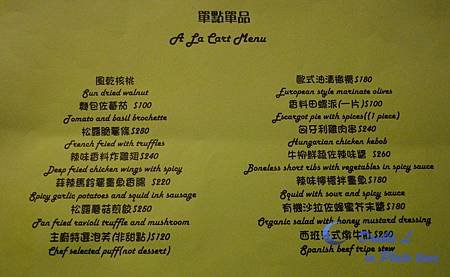 單點單品
A La Cart Menu
風乾核桃
Sun dried walnut
麵包佐蕃茄 $100
Tomato and basil brochette
松露脆薯條 $280
French fried with truffles
辣味香料炸雞翅 $240
Deep fried chicken wings with spicy
蒜辣馬鈴薯墨魚香腸 $220
Spicy garlic potatoes and squid ink sausage
松露蘑菇煎餃 $250
Pan fried ravioli truffle and mushroom
主廚特選泡芙(非甜點) $120
Chef selected puff(not dessert)
歐式油漬橄欖 $180
European style marinate olives
香料田螺派(一片) $100
Escargot pie with spices((1 piece)
匈牙利雞肉串 $240
Hungarian chicken kebob
牛柳鮮蔬佐辣味醬 $260
Boneless short ribs with vegetables in spicy sauce
辣味檸檬拌墨魚 $180
Squid with sour and spicy sauce
有機沙拉佐蜂蜜芥末醬 $180
Organic salad with honey mustard dressing
西班牙式燉牛肚 $250
Spanish beef tripe stew